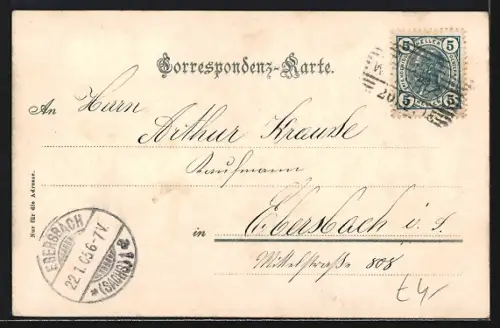 Correspondenz-Karte.
An Herrn
Arthur Krause
Kaufmann
in Ebersbach i. S.
Mittelstraße 808
Nur für die Adresse.
5 HELLER 5
5 5
20
EBERSBACH
22.1.05 6-7V.
* (SACHS.)
€4,-